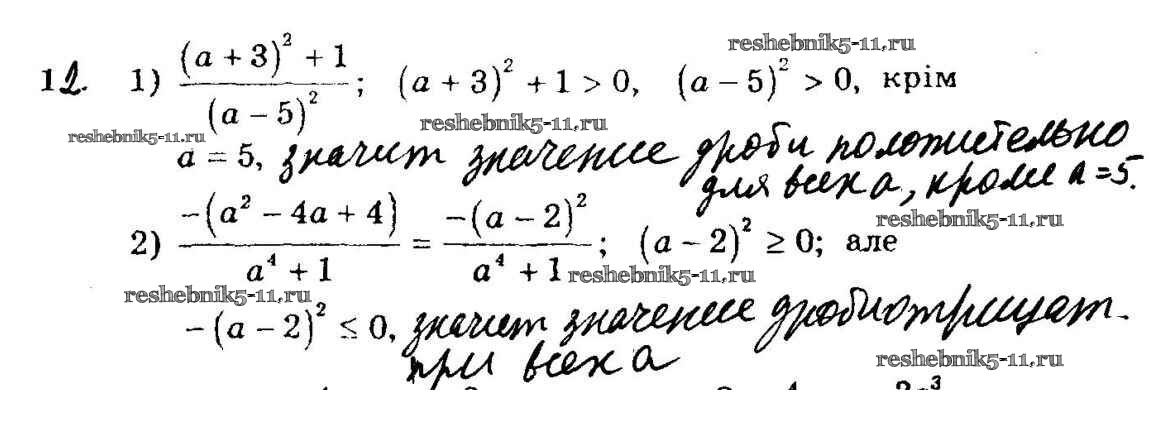 reshebnik5-11.ru
12. 1) \frac{(a + 3)^2 + 1}{(a - 5)^2}; (a + 3)^2 + 1 > 0, (a - 5)^2 > 0, крім
reshebnik5-11.ru reshebnik5-11.ru
a = 5, значит значение дроби положительно
для всех а, кроме a = 5.
reshebnik5-11.ru
2) \frac{-(a^2 - 4a + 4)}{a^4 + 1} = \frac{-(a - 2)^2}{a^4 + 1}; (a - 2)^2 ≥ 0; але
reshebnik5-11.ru
reshebnik5-11.ru
-(a - 2)^2 ≤ 0, значит значение дроби отрицат.
при всех а
reshebnik5-11.ru